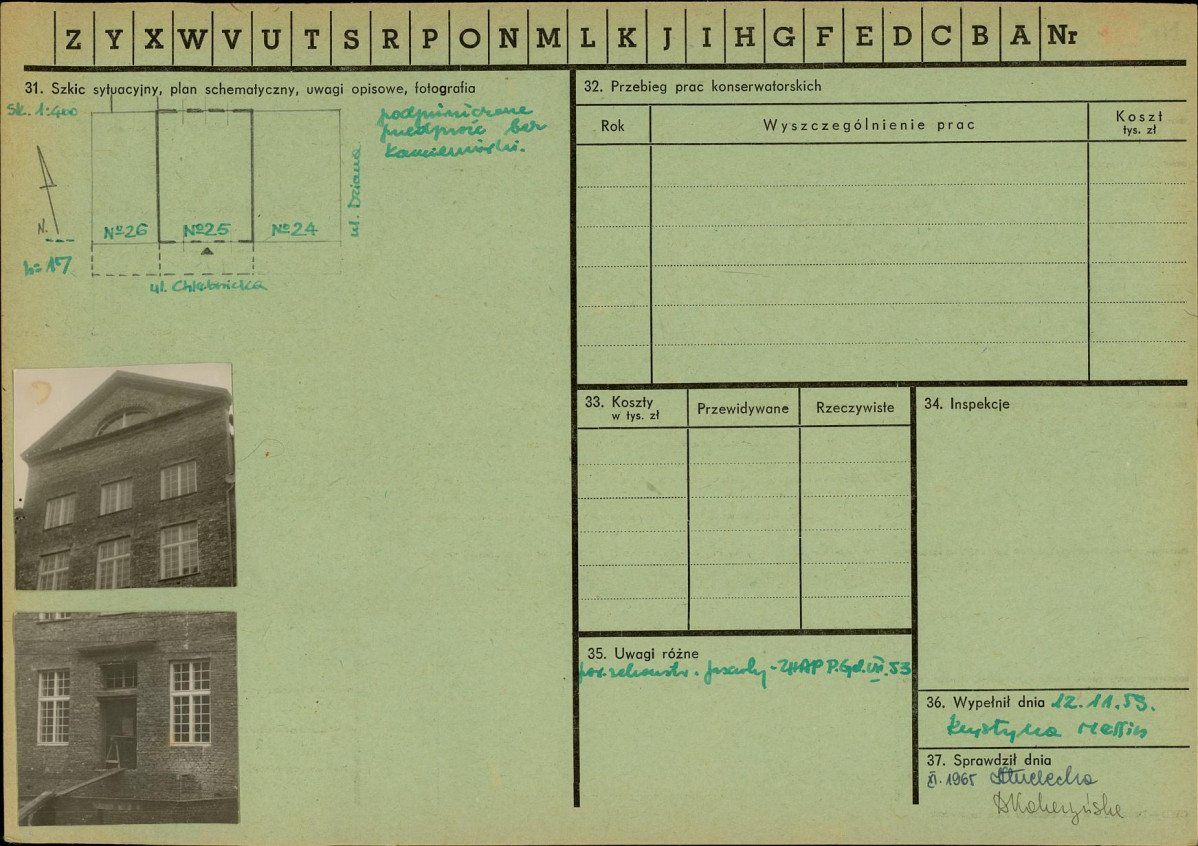 Z Y X W V U T S R P O N M L K J I H G F E D C B A Nr
31. Szkic sytuacyjny, plan schematyczny, uwagi opisowe, fotografia
Sk. 1:400
podpiwniczone
przedproże bez
kamieniarki.
N.
h=17
№26 №25 №24
ul. Dziana
ul. Chlebnicka
32. Przebieg prac konserwatorskich
Rok Wyszczególnienie prac Koszt
tys. zł
33. Koszty
w tys. zł
Przewidywane Rzeczywiste
34. Inspekcje
35. Uwagi różne
fasady - ZHAP P.Gd. VII. 53
36. Wypełnił dnia 12.11.59.
Krystyna
37. Sprawdził dnia
XI. 1965